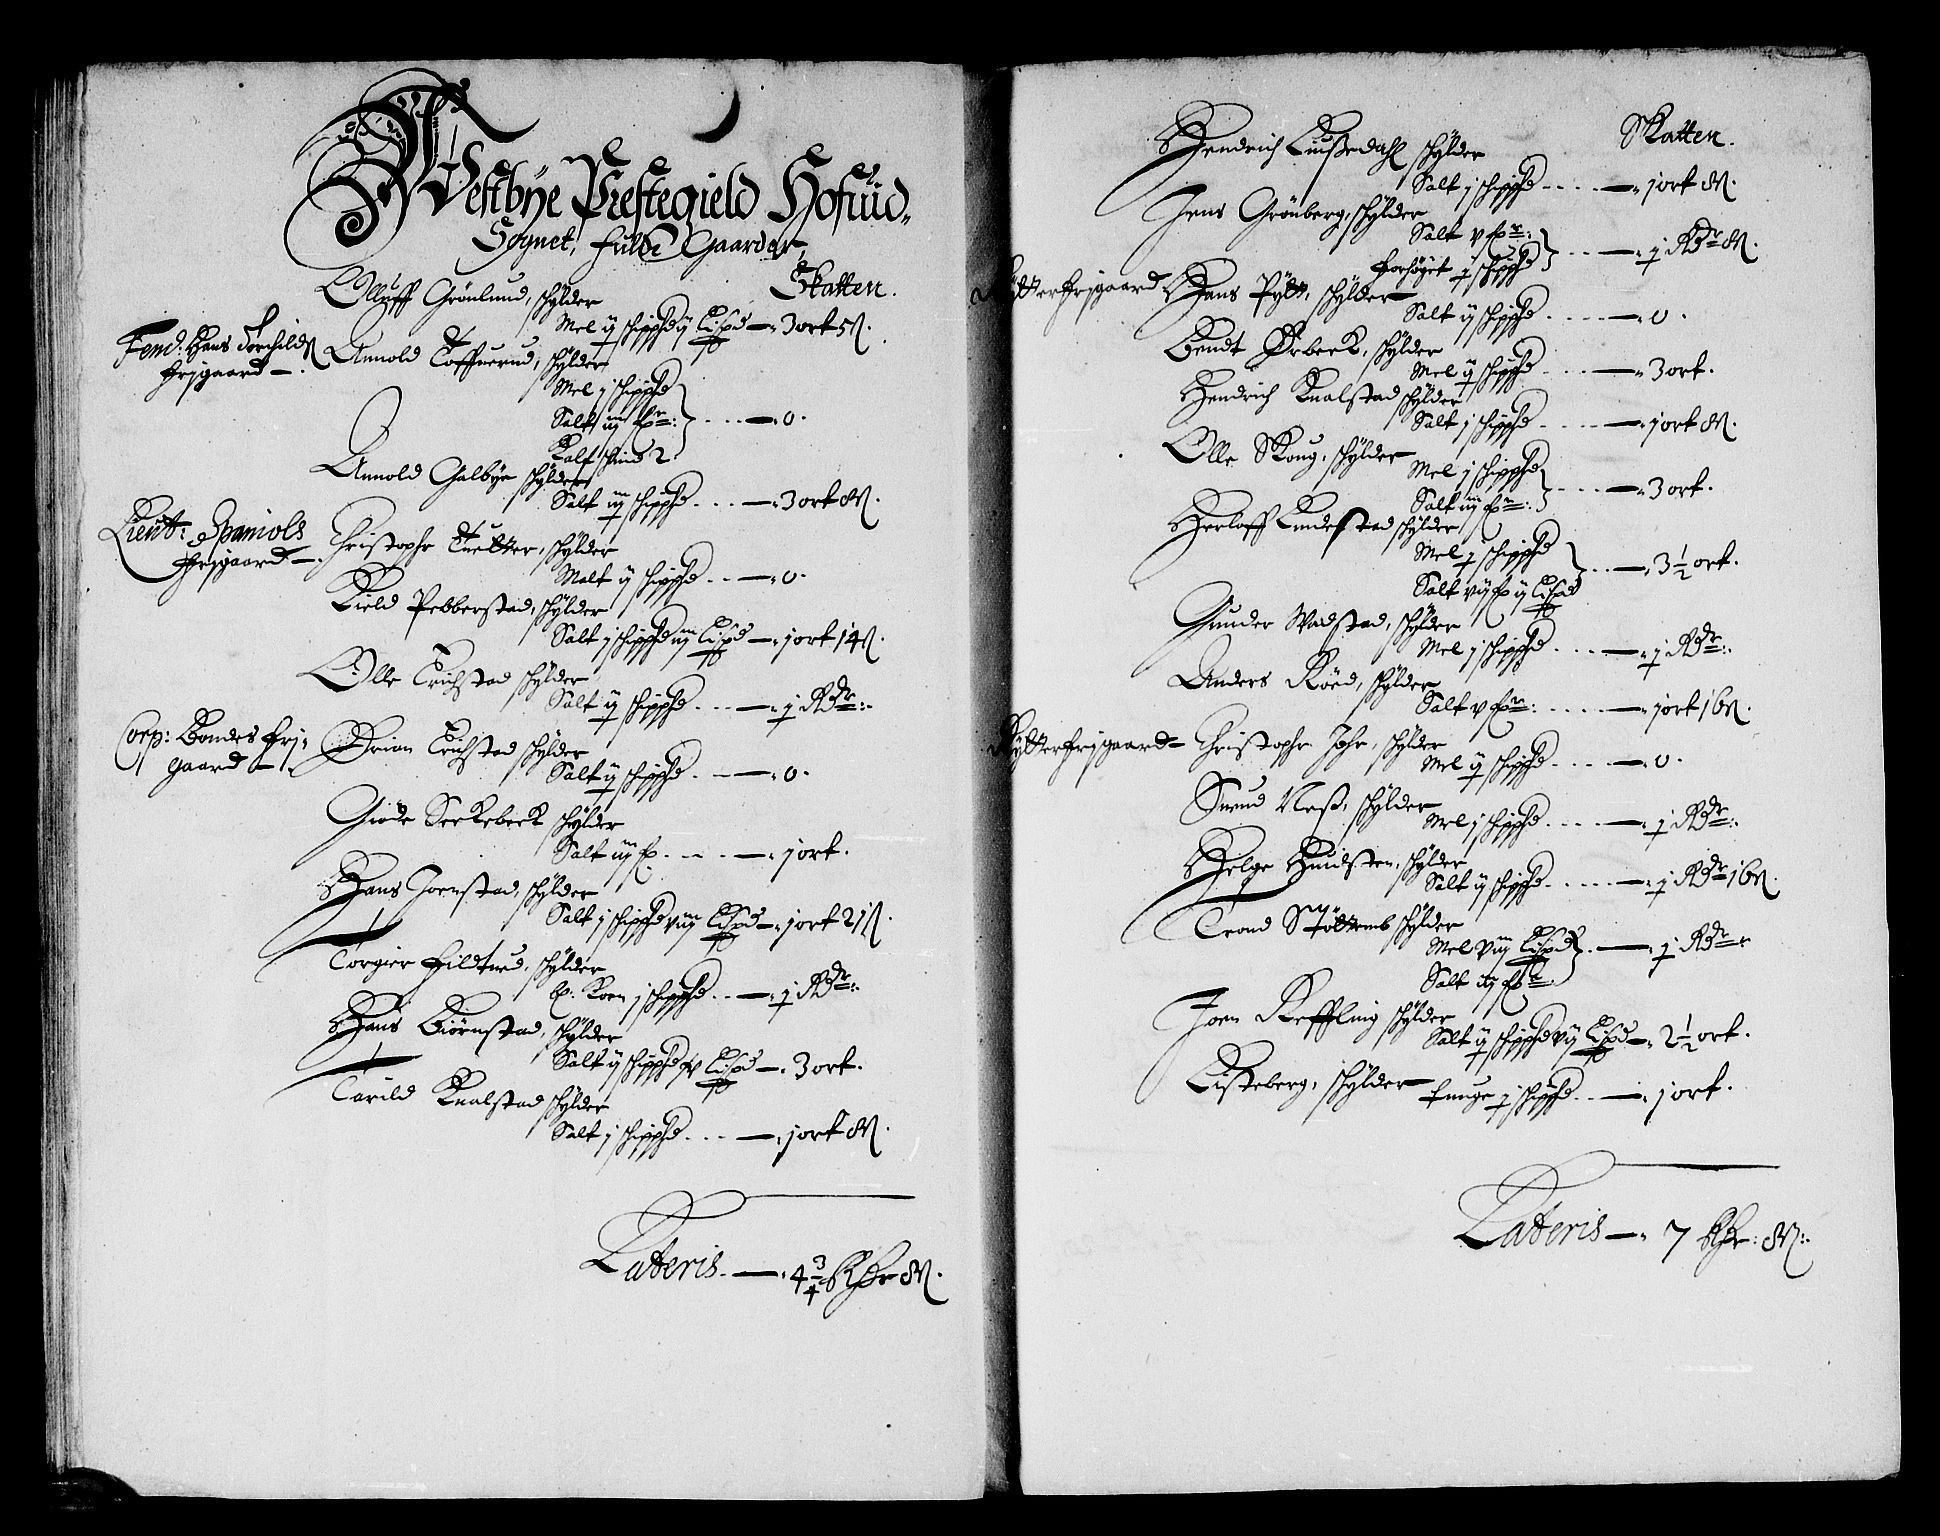 Vestbye Prestegield Hofuid-
Sognet, fulde Gaarder,
Skatten.
Olluff Grönlund, schÿlder
Mel ij schippd ij Lispd — 3 ort 5 ß.
Fend: Hans Torchilds
frjgaard —.
Annold Toffuerud, schÿlder
Mel j schippd
Salt iij fr:
Kalfschind 2
— 0.
Annold Galbye schÿlder
Salt iij schippd — 3 ort 8 ß.
Lieut: Spaniols
frjgaard —.
Christopher Tuetter, schÿlder
Malt ij schippd — 0.
Kield Pebberstad, schÿlder
Salt j schippd iiij Lispd — j ort 14 ß.
Olle Erichstad schÿlder
Salt ij schippd — j Rdr:
Corp: Bondes frj-
gaard —.
Brian Erichstad schÿlder
Salt ij schippd — 0.
Giöde Seekebeek schÿlder
Salt iiij — j ort.
Hans Joenstad, schÿlder
Salt j schippd viij Lispd — j ort 21 ß.
Torgier Fildtued, schÿlder
Koen j schippd — j Rdr:
Hans Biörnstad, schÿlder
Salt ij schippd Lispd — 3 ort.
Tarild Kualstad schÿlder
Salt j schippd — j ort 8 ß.
Lateris — 4 3/4 Rdr 8 ß.
Skatten.
Hendrich Liußedahl schÿlder
Salt j schippd — j ort 8 ß.
Jens Grönberg, schÿlder
Salt v fr:
forhöyet j schippd
— j Rdr 8 ß.
Rÿtterfrjgaard
Hans Pÿtt, schÿlder
Salt ij schippd — 0.
Bendt Ørbeek, schÿlder
Mel ij schippd — 3 ort.
Hendrich Kualstad schÿlder
Salt j schippd — j ort 8 ß.
Olle Skoug, schÿlder
Mel j schippd
Salt iij fr:
— 3 ort.
Herloff Lundestad schÿlder
Mel j schippd
Salt vij ij Lispd
— 3 1/2 ort.
Gunder Wadstad, schÿlder
Mel j schippd — j Rdr:
Anders Röed, schÿlder
Salt v fr: — j ort 16 ß.
Rÿtterfrjgaard —
Christopher Johr, schÿlder
Mel ij schippd — 0.
Suend Neß, schÿlder
Mel j schippd — j Rdr:
Helge Huidsten, schÿlder
Salt ij schippd — j Rdr 16 ß.
Trond schÿlder
Mel viij Lispd
Salt iiij fr:
— j Rdr
Joen Keffling schÿlder
Salt ij schippd vij Lispd — 2 1/2 ort.
Listeberg, schÿlder
Tunge j schippd — j ort.
Lateris — 7 Rdr: 8 ß: